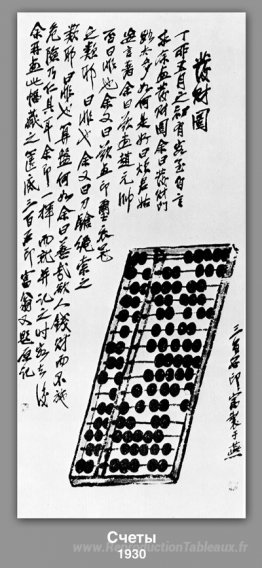 發財圖
丁卯五月之初有客至自言
求余畫發財圖余曰發財門
路太多如何是好曰煩君姑
妄言著余曰欲畫趙元帥
否曰非也余又曰欲畫印璽衣冠
之類耶曰非也余又曰刀槍繩索之
類耶曰非也算盤何如余曰善哉欲人錢財而不施
危險乃仁具耳余即一揮而就並記之時客去後
余再畫此幅藏之篋底三百石印富翁又題原記
三百石印富翁製于燕
Счеты
1930
www.ReproductionTableaux.fr